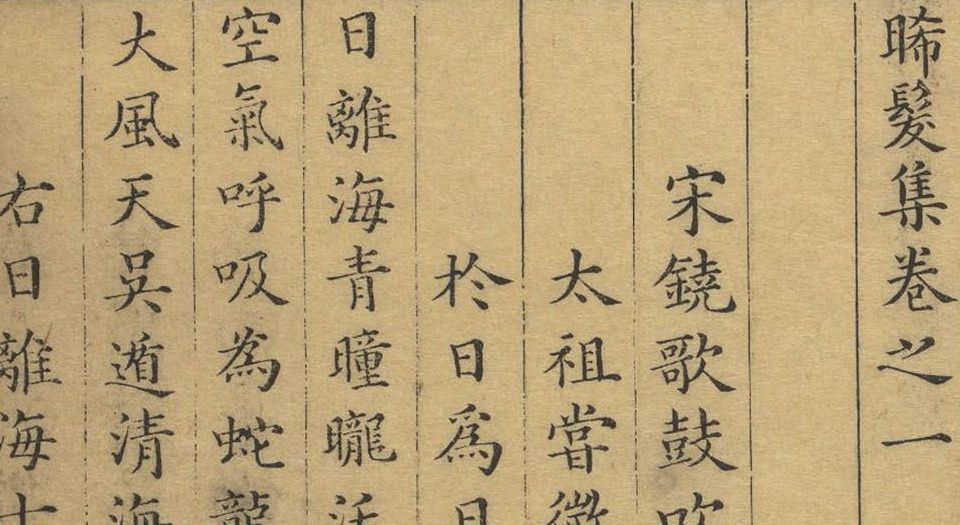 晞髮集卷之一
宋鐃歌鼓吹
太祖嘗微
於日為日
日離海青曈曨活
空氣呼吸為蛇龍
大風天吳遁清海
右日離海十